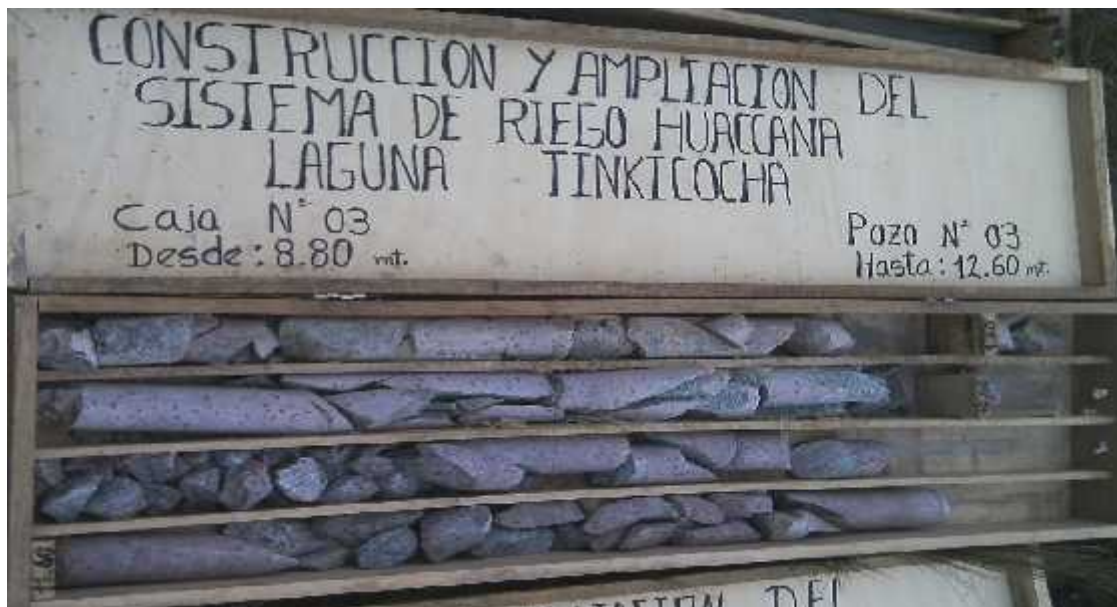 CONSTRUCCION Y AMPLIACION DEL
SISTEMA DE RIEGO HUACCANA
LAGUNA TINKICOCHA
Caja N° 03
Desde: 8.80 mt.
Pozo N° 03
Hasta: 12.60 mt.
DEL